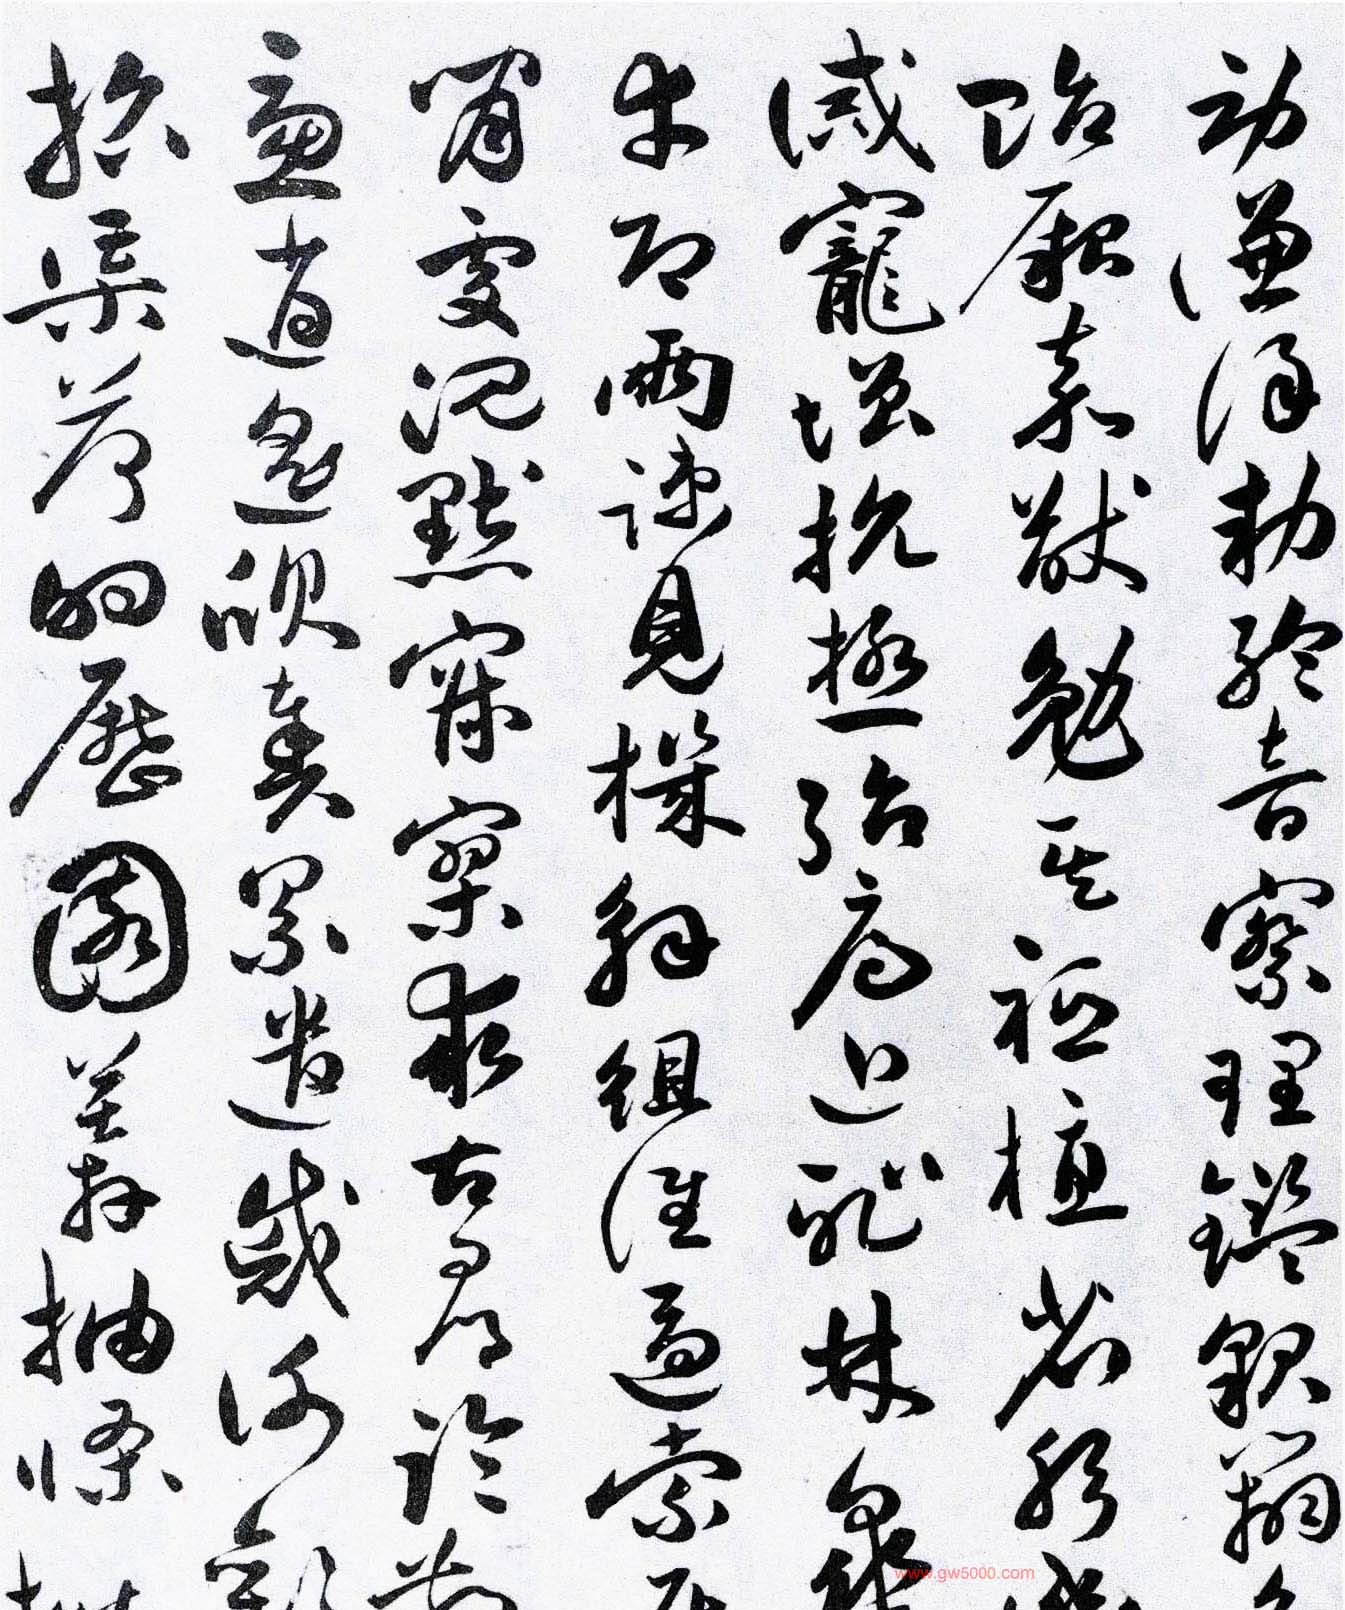 勞謙謹勅聆音察理鑑貌辯色
貽厥嘉猷勉其祗植省躬譏
誡寵增抗極殆辱近恥林皋
幸即兩疏見機解組誰逼索居
閑處沉默寂寥求古尋論散
慮逍遙欣奏累遣慼謝歡
招渠荷的歷園莽抽條枇
www.gw5000.com